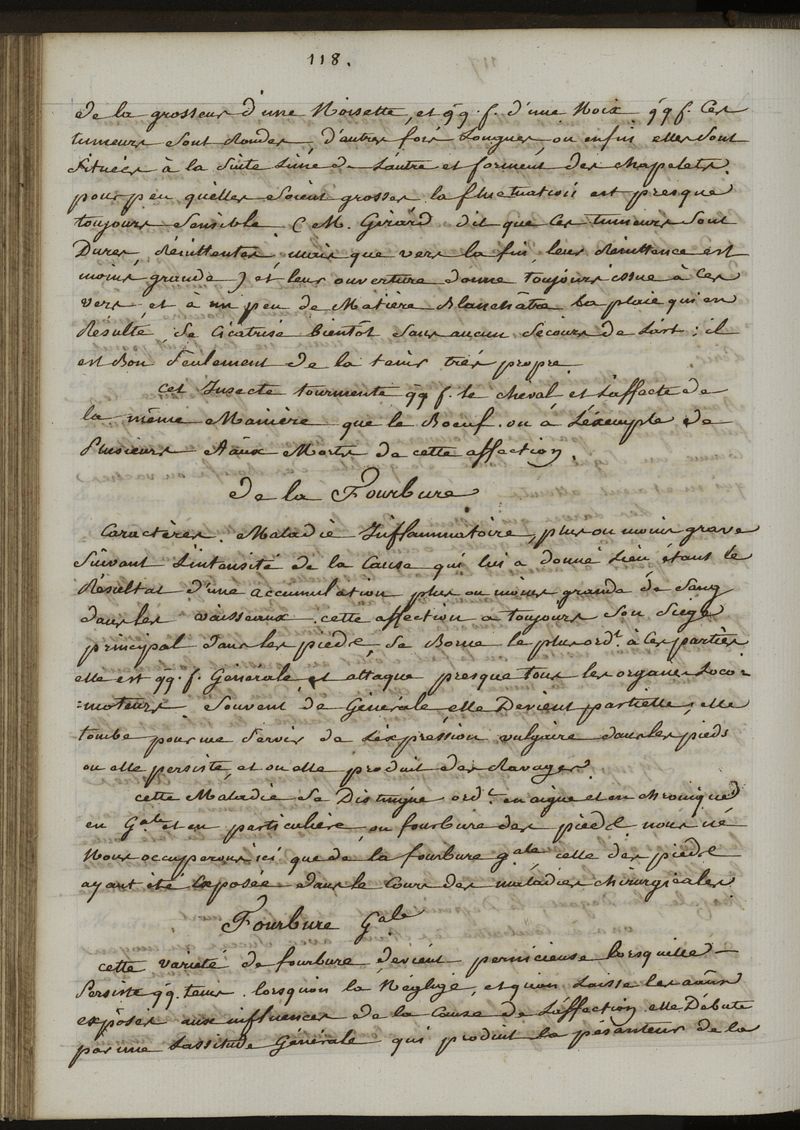 118.
de la grosseur d'une Noisette, et qq. f. d'une Noix qq f. Ces
tumeurs sont Rondes, d'autres fois Longues, ou enfin elles sont
Situées à la Suite L'une de L'autre et forment des chapelets.
pour peu qu'elles soient grosses la fluctuation est presque
toujours sensible (M. Girard dit que les tumeurs sont
Dures, Rénittentes, mais que vers la fin leur Rénittence est
moins grande) et leur ouverture donne toujours issue à Ces
vers, et à un peu de Matière Blanchâtre la plaie qui en
Résulte, Se Cicatrise bientôt sans aucun Secours de L'art : il
est Bon Seulement de la tenir très propre.
cet Insecte tourmente qq f. le cheval et L'affecte de
la même Manière que le Boeuf. on a L'exemple de
Plusieurs Aaux Morts de cette affection.
De la Fourbure
Caractères. Maladie Inflammatoire, plus ou moins grave
Suivant L'intensité de la Cause qui lui a donné Lieu, étant le
Résultat d'une accumulation plus ou moins grande de Sang
dans les vaisseaux. cette affection a toujours Son Siège
principal dans les pieds, Se Borne le plus ordt. à ces parties
elle est qq. f. Générale, et attaque presque tous les organes Loco=
=moteurs. Souvent de Générale, elle Devient partielle, elle
tombe pour me Servir de L'expression vulgaire dans les pieds
ou elle persiste, et ou elle produit des Ravages.
cette Maladie Se Distingue ordt. en aigue et en chronique
en Gale et en particulière, ou fourbure des pieds. nous ne
Nous occuperons ici que de la fourbure gale, celle des pieds
ayant été Exposée dans le Cours des maladies chirurgicales.
Fourbure Gale
cette varieté de fourbure devient pernicieuse lorsqu'elle
Persiste qq. tems. lorsqu'on la Néglige, et qu'on Laisse les aaux
exposés aux influences de la Cause de L'affection. elle Débute
par une Lassitude Générale qui produit la pésanteur de la